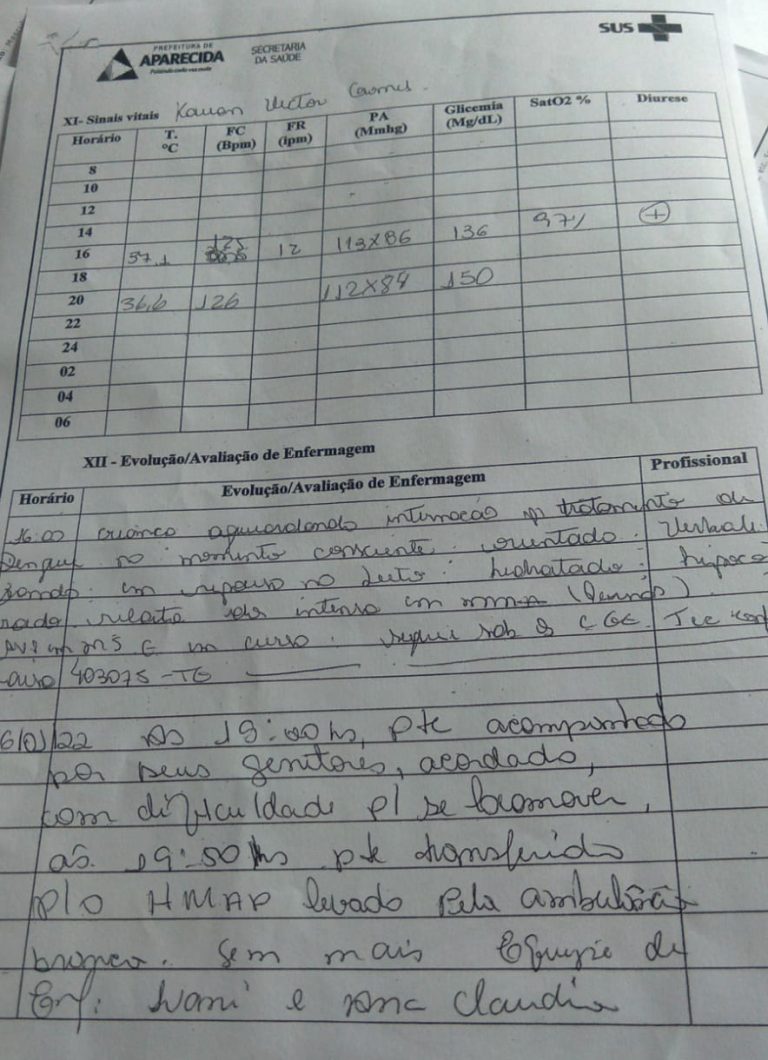 SUS
PREFEITURA DE
APARECIDA
SECRETARIA
DA SAÚDE
XI- Sinais vitais Kauan Victor
Horário T. ºC FC (Bpm) FR (ipm) PA (Mmhg) Glicemia (Mg/dL) SatO2 % Diurese
8
10
12
14
16 37,1 12 113x86 136 97% +
18
20 36,6 126 112x84 150
22
24
02
04
06
XII - Evolução/Avaliação de Enfermagem
Horário Evolução/Avaliação de Enfermagem Profissional
16:00 criança aguardando internação p/ tratamento de
Dengue no momento consciente. orientado. Verbali
zando. em repouso no leito. hidratado. hipoco
rado relata dor intensa em
em curso. segue sob Tec
403075-TE
às 19:00 hs, pte acompanhado
por seus genitores, acordado,
com dificuldade p/ se locomover,
às 19:50 hs pte transferido
p/o HMAP levado pela ambulância
branca. Sem mais Equipe de
Enf: Ivani e Ana Claudia